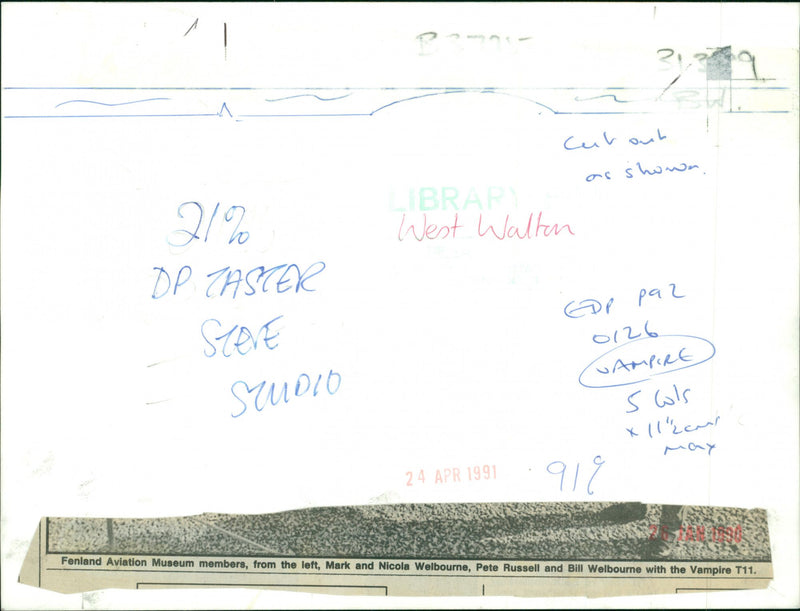 Cut out
as shown.
LIBRARY
West Walton
21%
DP TASTER
STEVE
STUDIO
EDP P92
0126
VAMPIRE
5 Cols
x 11½cms
max
24 APR 1991
919
JAN 1990
Fenland Aviation Museum members, from the left, Mark and Nicola Welbourne, Pete Russell and Bill Welbourne with the Vampire T11.